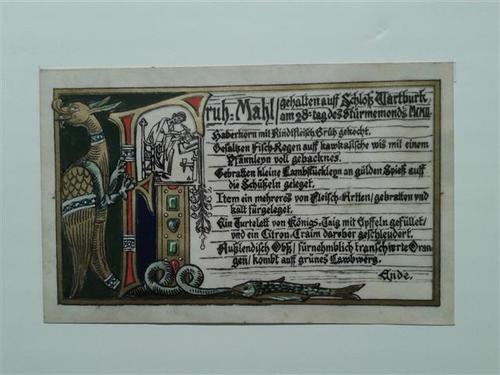 Früh-Mahl / gehalten auff Schloß Wartburk
am 28= tag des Stürmemonds MCMII.
Haberkorn mit Rindtfleisch-Brüh gekocht.
Gesaltzen Fisch-Rogen auff kawkasische wis mit einem
Pfännleyn voll gebacknes.
Gebratten kleine Lambstückleyn an gülden Spieß auff
die Schüßeln geleget.
Item ein mehreres von Fleisch-Artten / gebratten vnd
kalt fürgeleget.
Ein Turtelett von Königs-Taig mit Epffeln gefüllet /
vnd ein Citron-Craim darober geschleudert.
Außlendisch Obß / fürnehmblich transchirte Oran-
gen / kombt auff grünes Lawbwerg.
Ende.